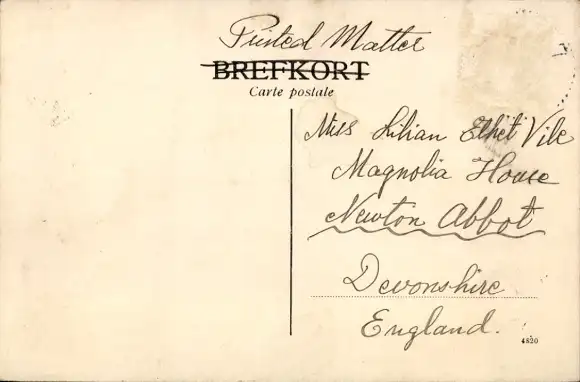 Printed Matter
BREFKORT
Carte postale
Miss Lilian Ethel Vile
Magnolia House
Newton Abbot
Devonshire
England.
4820